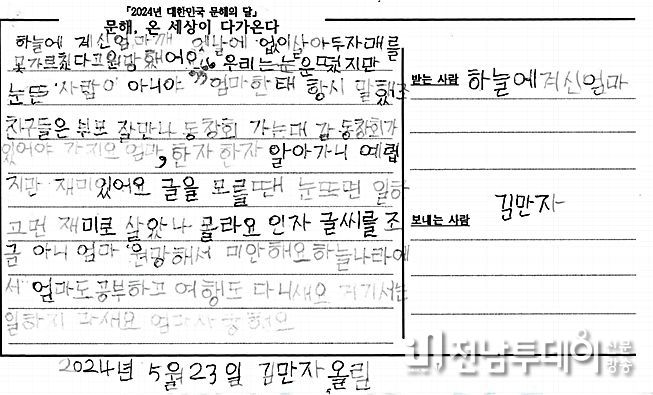 「2024년 대한민국 문해의 달」
문해, 온 세상이 다가온다
하늘에 계신 엄마께 옛날에 없이 살아 두자매를
못가르쳤다고 원망했어요 우리는 눈은 떴지만
눈뜬 사람이 아니야 엄마한태 항시 말했죠
친구들은 쉰프 잘만나 동창회 가는대 갈 동창회가
있어야 가지요 엄마, 한자 한자 알아가니 예렵
지만 재미있어요 글을 모를땐 눈뜨면 일하
고먼 재미로 살았나 몰라요 인자 글씨를 조
금 아니 엄마 원망해서 미안해요 하늘나라에
서 엄마도 공부하고 여행도 다니새요 거기서는
일하지 마새요 엄마 사랑해요
2024년 5월 23일 김만자 올림
받는 사람 하늘에 계신 엄마
보내는 사람 김만자
전남투데이 신문 방송